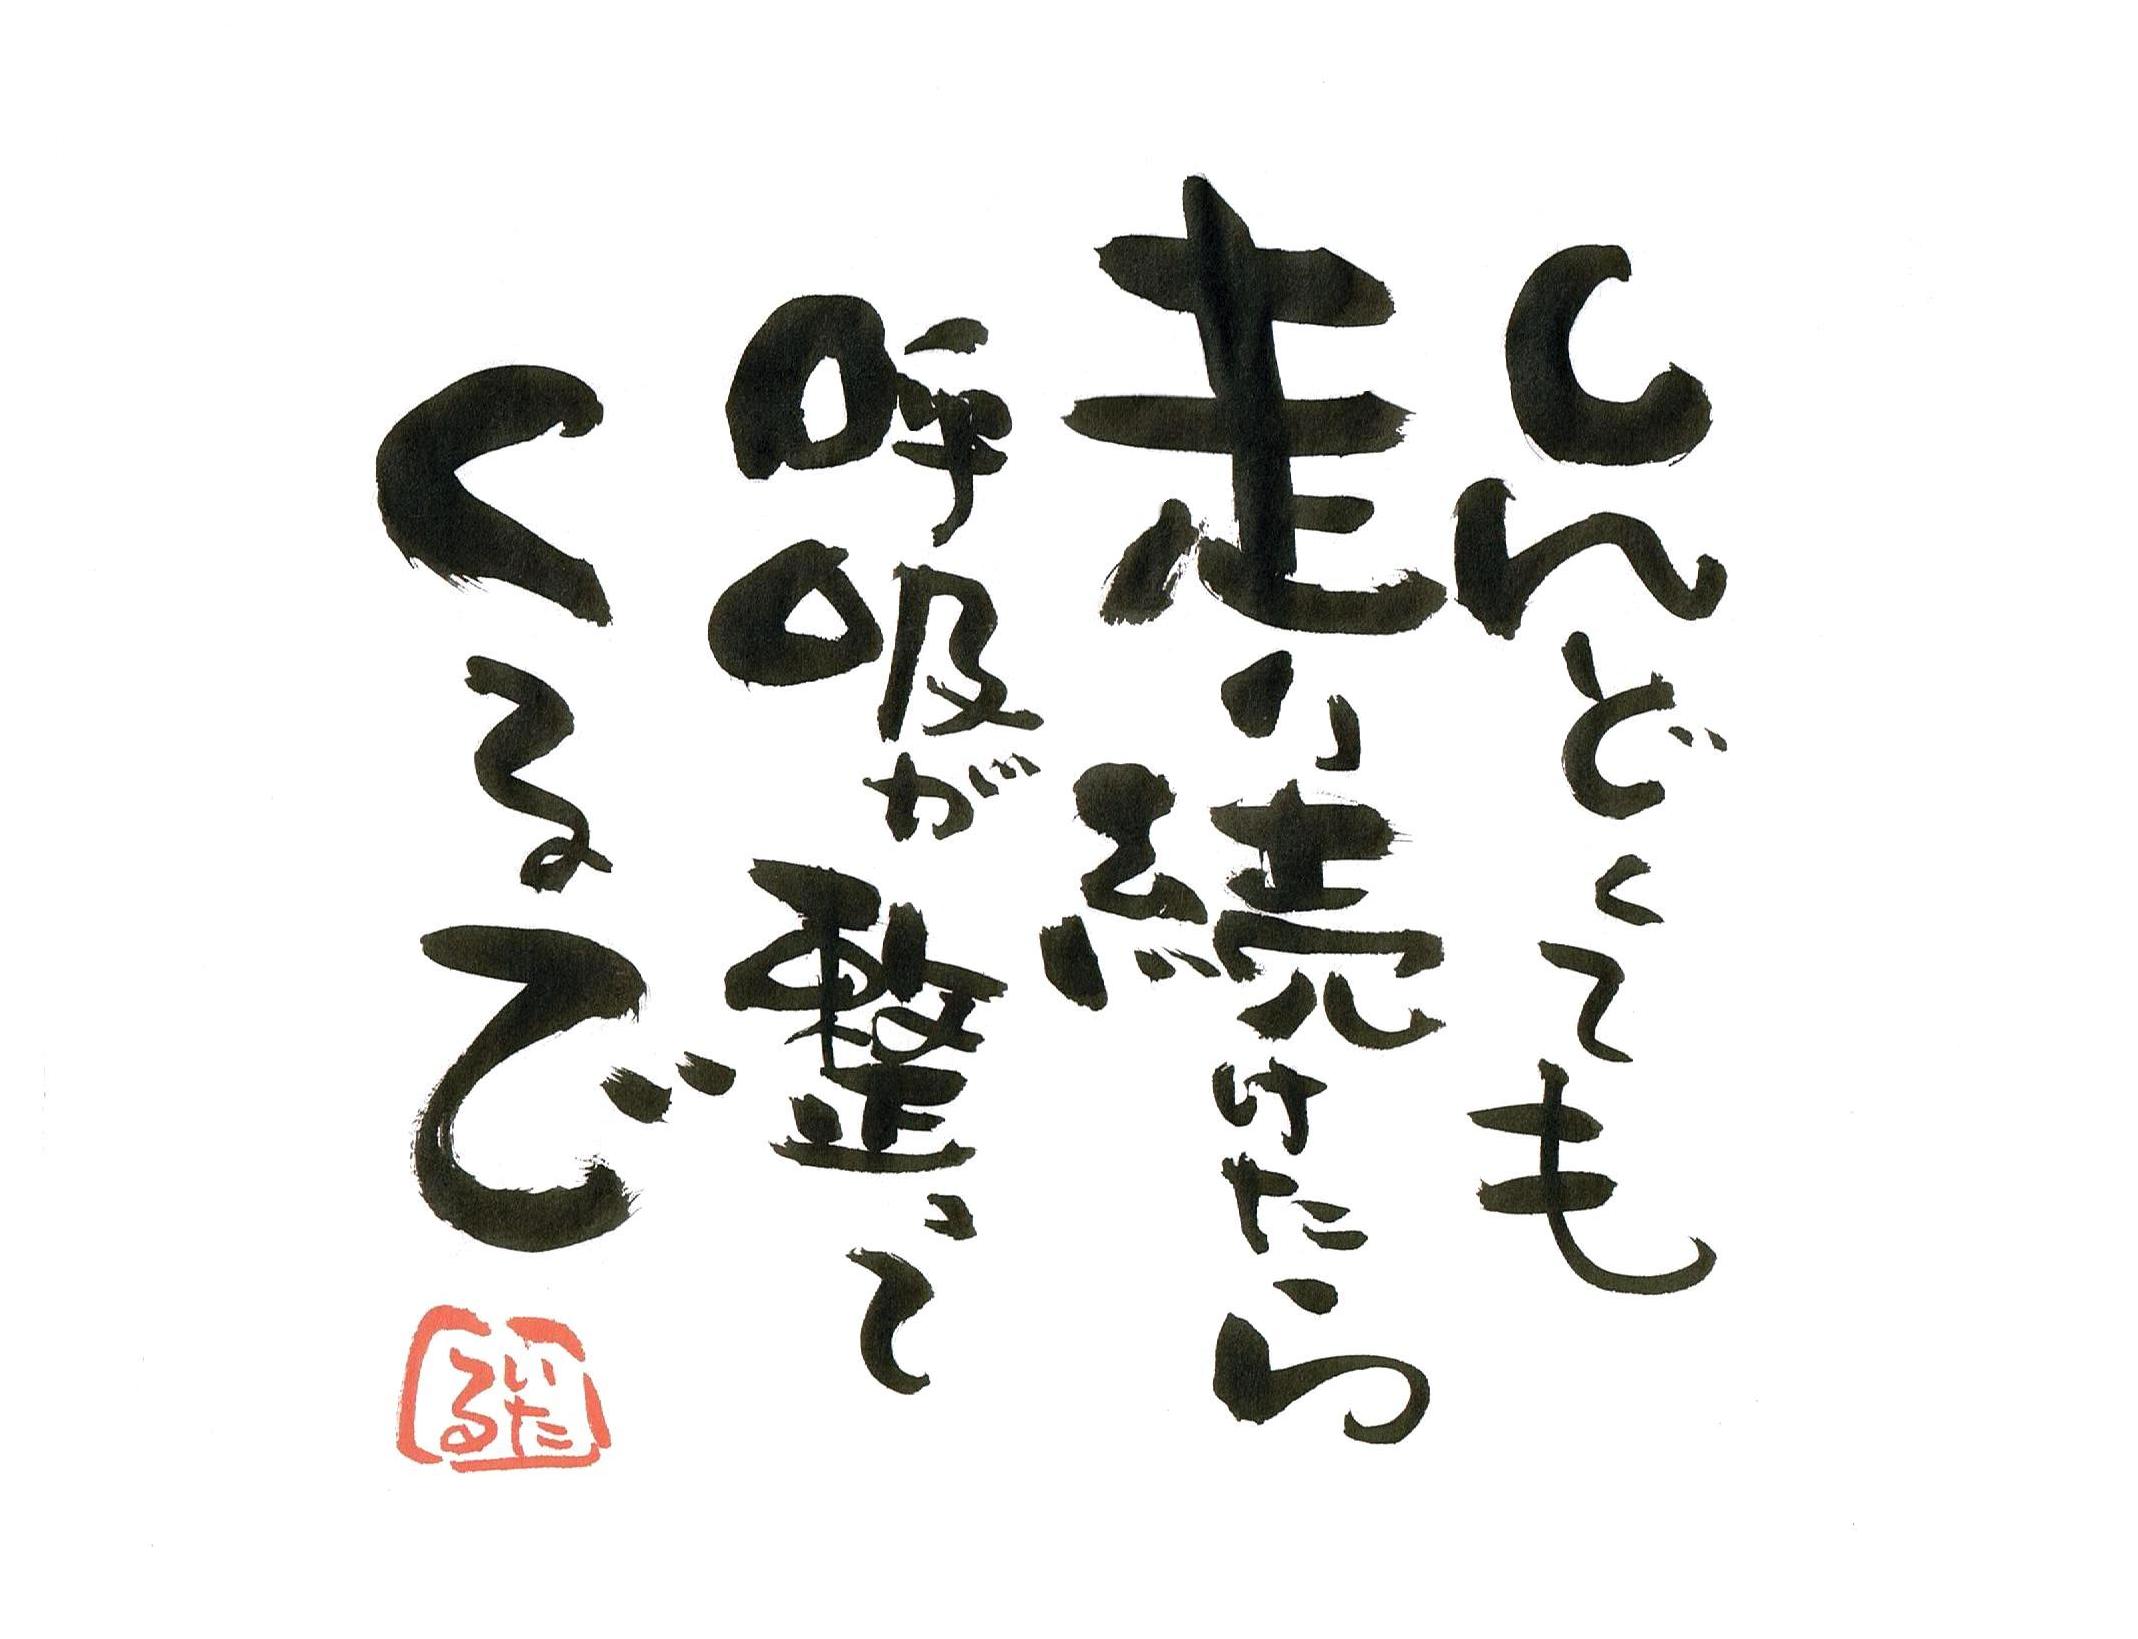 しんどくても
走り続けたら
呼吸が整って
くるで
いたる